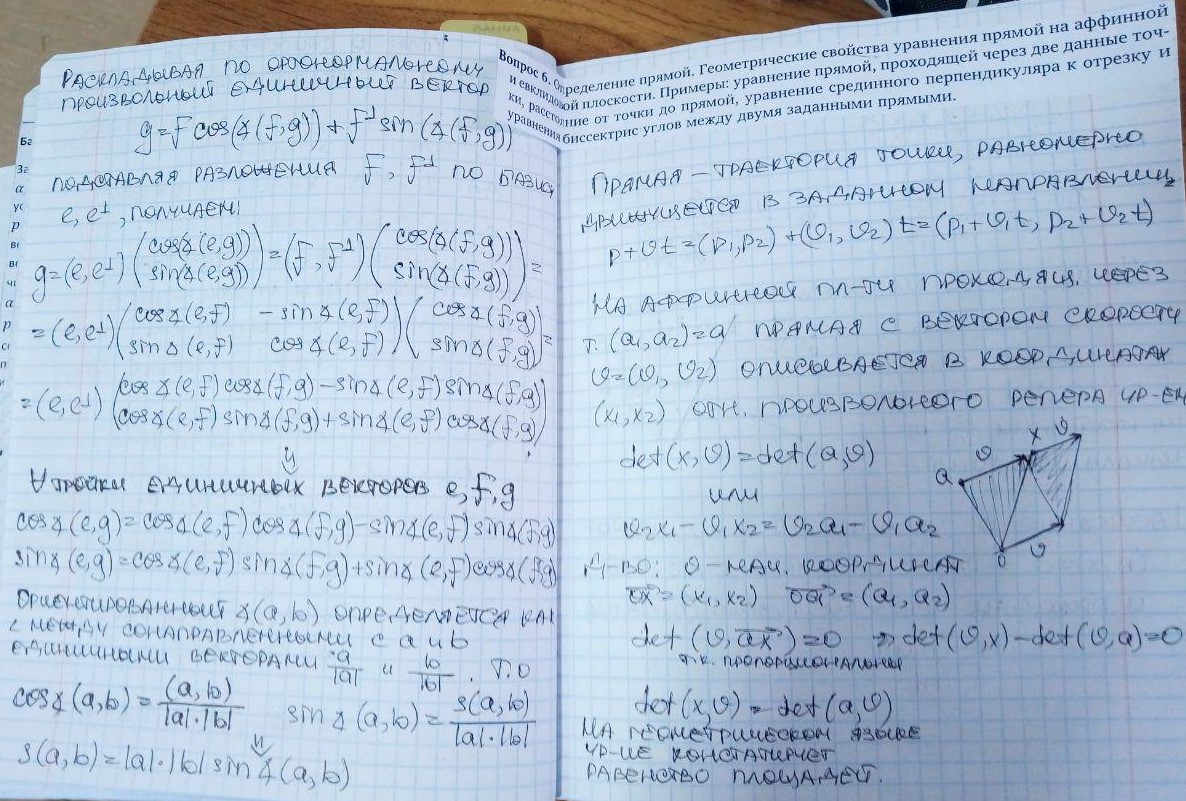 РАСКЛАДЫВАЯ ПО ОРТОНОРМАЛЬНОМУ
ПРОИЗВОЛЬНЫЙ ЕДИНИЧНЫЙ ВЕКТОР
g=f cos(∡(f,g))+f^⊥ sin(∡(f,g))
ПОДСТАВЛЯЯ РАЗЛОЖЕНИЯ f, f^⊥ ПО БАЗИСУ
e, e^⊥, ПОЛУЧАЕМ:
g=(e,e^⊥) (cos(∡(e,g)) sin(∡(e,g))) = (f, f^⊥) (cos(∡(f,g)) sin(∡(f,g))) =
= (e,e^⊥) (cos∡(e,f) -sin∡(e,f) sin∡(e,f) cos∡(e,f)) (cos∡(f,g) sin∡(f,g)) =
= (e,e^⊥) (cos∡(e,f)cos∡(f,g)-sin∡(e,f)sin∡(f,g) cos∡(e,f)sin∡(f,g)+sin∡(e,f)cos∡(f,g))
⇓
∀ ТРОЙКИ ЕДИНИЧНЫХ ВЕКТОРОВ e, f, g
cos∡(e,g)=cos∡(e,f)cos∡(f,g)-sin∡(e,f)sin∡(f,g)
sin∡(e,g)=cos∡(e,f)sin∡(f,g)+sin∡(e,f)cos∡(f,g)
ОРИЕНТИРОВАННЫЙ ∡(a,b) ОПРЕДЕЛЯЕТСЯ КАК
∠ МЕЖДУ СОНАПРАВЛЕННЫМИ С a и b
ЕДИНИЧНЫМИ ВЕКТОРАМИ a/|a| и b/|b|. Т.О
cos∡(a,b)=(a,b)/|a|·|b| sin∡(a,b)=s(a,b)/|a|·|b|
⇓
s(a,b)=|a|·|b| sin∡(a,b)
Вопрос 6. Определение прямой. Геометрические свойства уравнения прямой на аффинной
и евклидовой плоскости. Примеры: уравнение прямой, проходящей через две данные точ-
ки, расстояние от точки до прямой, уравнение срединного перпендикуляра к отрезку и
уравнения биссектрис углов между двумя заданными прямыми.
ПРЯМАЯ – ТРАЕКТОРИЯ ТОЧКИ, РАВНОМЕРНО
ДВИЖУЩЕЙСЯ В ЗАДАННОМ НАПРАВЛЕНИИ
p+vt=(p₁,p₂)+(v₁,v₂)t=(p₁+v₁t, p₂+v₂t)
НА АФФИННОЙ ПЛ-ТИ ПРОХОДЯЩ. ЧЕРЕЗ
т. (a₁,a₂)=a ПРЯМАЯ С ВЕКТОРОМ СКОРОСТИ
v=(v₁, v₂) ОПИСЫВАЕТСЯ В КООРДИНАТАХ
(x₁,x₂) ОТН. ПРОИЗВОЛЬНОГО РЕПЕРА УР-ЕМ
det(x,v)=det(a,v)
ИЛИ
v₂x₁-v₁x₂=v₂a₁-v₁a₂
a v x v
0 v
Д-ВО: 0-НАЧ. КООРДИНАТ
0x=(x₁,x₂) 0a=(a₁,a₂)
det(v,ax)=0 ⇒ det(v,x)-det(v,a)=0
т.к. ПРОПОРЦИОНАЛЬНЫ
det(x,v)=det(a,v)
НА ГЕОМЕТРИЧЕСКОМ ЯЗЫКЕ
УР-ИЕ КОНСТАТИРУЕТ
РАВЕНСТВО ПЛОЩАДЕЙ.